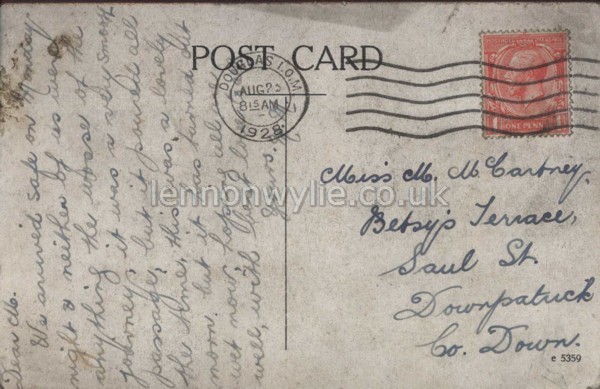 POST CARD
DOUGLAS I.O.M
AUG 2
8 15 AM
1928
ONE PENNY
Dear M.
We arrived safe on Monday
night & neither of us were
the worse of the
anything it was a very smooth
journey, but it poured all
passage, this was a lovely
the time, it has turned out
noon. but it
wet now, hope all
well, with best love
Yours,
Miss M. McCartney
Betsy's Terrace,
Saul St.
Downpatrick
Co. Down.
e 5359
lennonwylie.co.uk